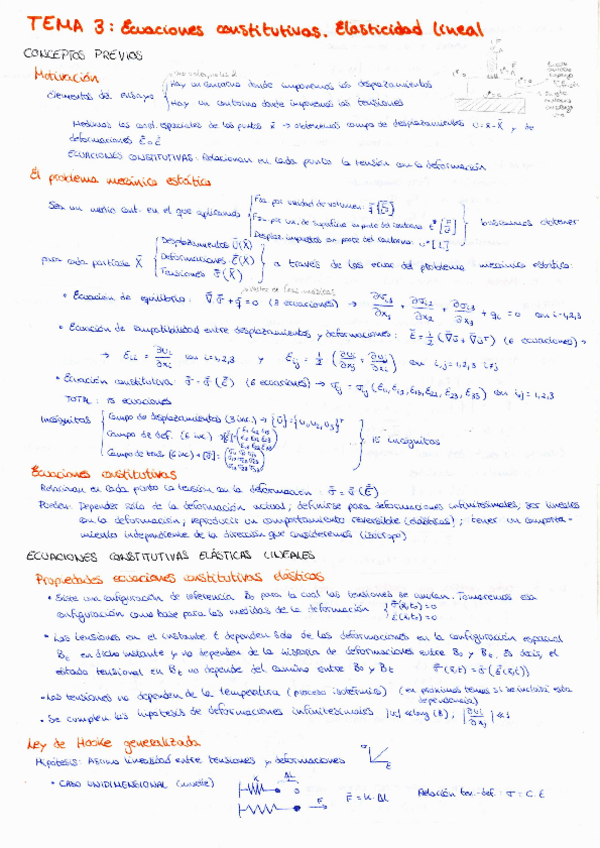 TEMA 3: Ecuaciones constitutivas. Elasticidad lineal
CONCEPTOS PREVIOS
Motivación
Elementos del ensayo { Hay un contorno donde imponemos los desplazamientos
Hay un contorno donde imponemos las tensiones
Medimos las coord. espaciales de los puntos x̄ → obtenemos campo de desplazamientos Ū = x̄ - X̄, y de
deformaciones
ECUACIONES CONSTITUTIVAS: Relacionan en cada punto la tensión con la deformación
El problema mecánico estático
Sea un medio cont. en el que aplicamos { Fzas. por unidad de volumen:
Fzas. por un. de superficie en parte del contorno
Desplaz. impuestos en parte del contorno: u* [L]
buscamos obtener
para cada partícula X̄ { Desplazamientos Ū(X̄)
Deformaciones (X̄)
Tensiones (X̄)
} a través de las ecuac. del problema mecánico estático:
• Ecuación de equilibrio: ∇·σ + q = 0 (3 ecuaciones) → ∂σi1/∂x1 + ∂σi2/∂x2 + ∂σi3/∂x3 + qi = 0 con i=1,2,3
• Ecuación de compatibilidad entre desplazamientos y deformaciones: (6 ecuaciones) →
→ Eii = ∂Ui/∂xi con i=1,2,3 y Eij = 1/2 (∂Ui/∂xj + ∂Uj/∂xi) con i,j=1,2,3 i≠j
• Ecuación constitutiva σ = σ(E) (6 ecuaciones) → σij = σij (E11, E12, E13, E22, E23, E33) con i,j=1,2,3
TOTAL: 15 ecuaciones
Incógnitas { Campo de desplazamientos (3 inc.) → {U} = {U1, U2, U3}T
Campo de def. (6 inc.)
Campo de tens. (6 inc.)
} 15 incógnitas
Ecuaciones constitutivas
Relacionan en cada punto la tensión con la deformación: σ = σ(E)
Pueden: Depender sólo de la deformación actual; definirse para deformaciones infinitesimales; ser lineales
con la deformación; reproducir un comportamiento reversible (elásticas); tener un comporta-
miento independiente de la dirección que consideremos (isótropo)
ECUACIONES CONSTITUTIVAS ELÁSTICAS LINEALES
Propiedades ecuaciones constitutivas elásticas
• Existe una configuración de referencia B0 para la cual las tensiones se anulan. Tomaremos esa
configuración como base para las medidas de la deformación
• Las tensiones en el instante t dependen sólo de las deformaciones en la configuración espacial
Bt en dicho instante y no dependen de la historia de deformaciones entre B0 y Bt. Es decir, el
estado tensional en Bt no depende del camino entre B0 y Bt
• Las tensiones no dependen de la temperatura (proceso isotérmico) (en próximos temas sí se incluirá esta
dependencia)
• Se cumplen las hipótesis de deformaciones infinitesimales
Ley de Hooke generalizada
Hipótesis: Asumo linealidad entre tensiones y deformaciones
• CASO UNIDIMENSIONAL (muelle)
K ΔL
F = K·ΔL
Relación ten.-def.: σ = C·E